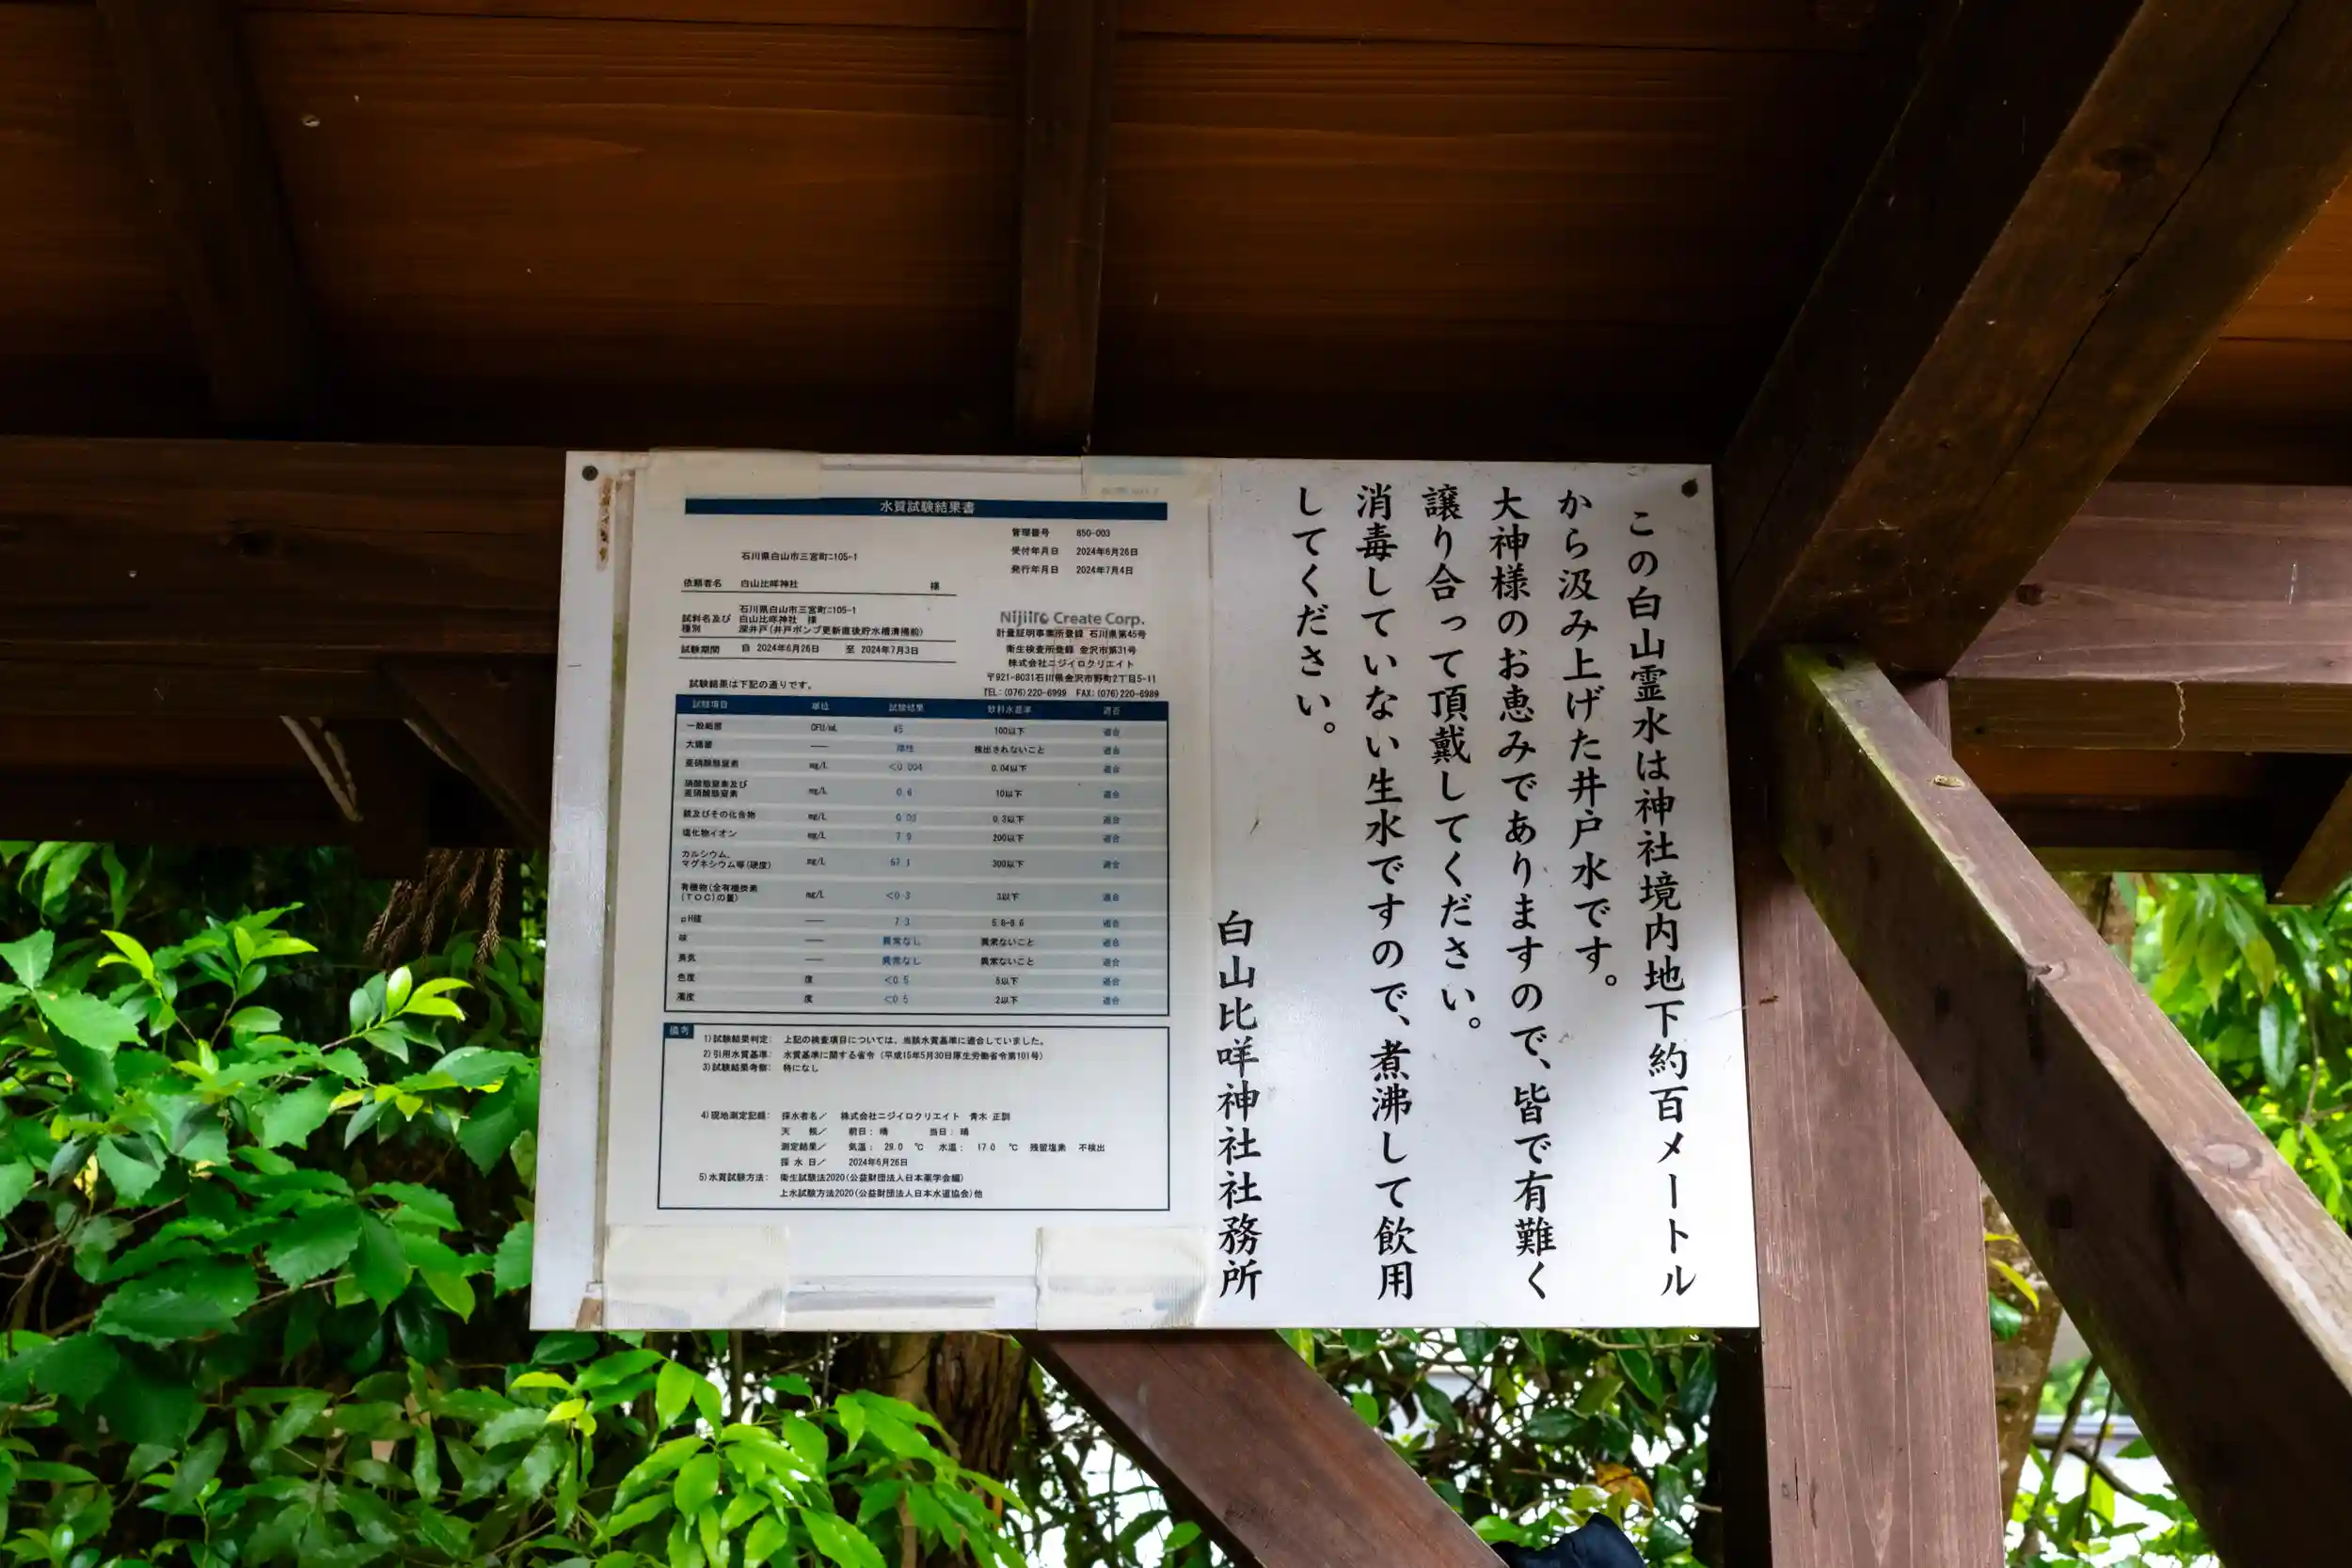 この白山霊水は神社境内地下約百メートル
から汲み上げた井戸水です。
大神様のお恵みでありますので、皆で有難く
譲り合って頂戴してください。
消毒していない生水ですので、煮沸して飲用
してください。
白山比咩神社社務所
水質試験結果書
管理番号 850-003
受付年月日 2024年6月26日
発行年月日 2024年7月4日
石川県白山市三宮町ﾆ105-1
依頼者名 白山比咩神社 様
試料名及び種別 石川県白山市三宮町ﾆ105-1
白山比咩神社 様
深井戸(井戸ポンプ更新直後貯水槽清掃前)
試験期間 自 2024年6月26日 至 2024年7月3日
Nijiiro Create Corp.
計量証明事業所登録 石川県第45号
衛生検査所登録 金沢市第31号
株式会社ニジイロクリエイト
〒921-8031石川県金沢市野町2丁目5-11
TEL:(076)220-6999 FAX:(076)220-6989
試験結果は下記の通りです。
試験項目 単位 試験結果 飲料水基準 適否
一般細菌 CFU/mL 45 100以下 適合
大腸菌 ── 陰性 検出されないこと 適合
亜硝酸態窒素 mg/L <0.004 0.04以下 適合
硝酸態窒素及び亜硝酸態窒素 mg/L 0.6 10以下 適合
鉄及びその化合物 mg/L 0.03 0.3以下 適合
塩化物イオン mg/L 7.9 200以下 適合
カルシウム、マグネシウム等(硬度) mg/L 300以下 適合
有機物(全有機炭素(TOC)の量) mg/L <0.3 3以下 適合
pH値 ── 7.3 5.8-8.6 適合
味 ── 異常なし 異常ないこと 適合
臭気 ── 異常なし 異常ないこと 適合
色度 度 <0.5 5以下 適合
濁度 度 <0.5 2以下 適合
備考
1)試験結果判定: 上記の検査項目については、当該水質基準に適合していました。
2)引用水質基準: 水質基準に関する省令(平成15年5月30日厚生労働省令第101号)
3)試験結果考察: 特になし
4)現地測定記録: 採水者名/ 株式会社ニジイロクリエイト 青木 正訓
天 候/ 前日: 晴 当日: 晴
測定結果/ 気温: 29.0 ℃ 水温: 17.0 ℃ 残留塩素 不検出
採 水 日/ 2024年6月26日
5)水質試験方法: 衛生試験法2020(公益財団法人日本薬学会編)
上水試験方法2020(公益財団法人日本水道協会)他